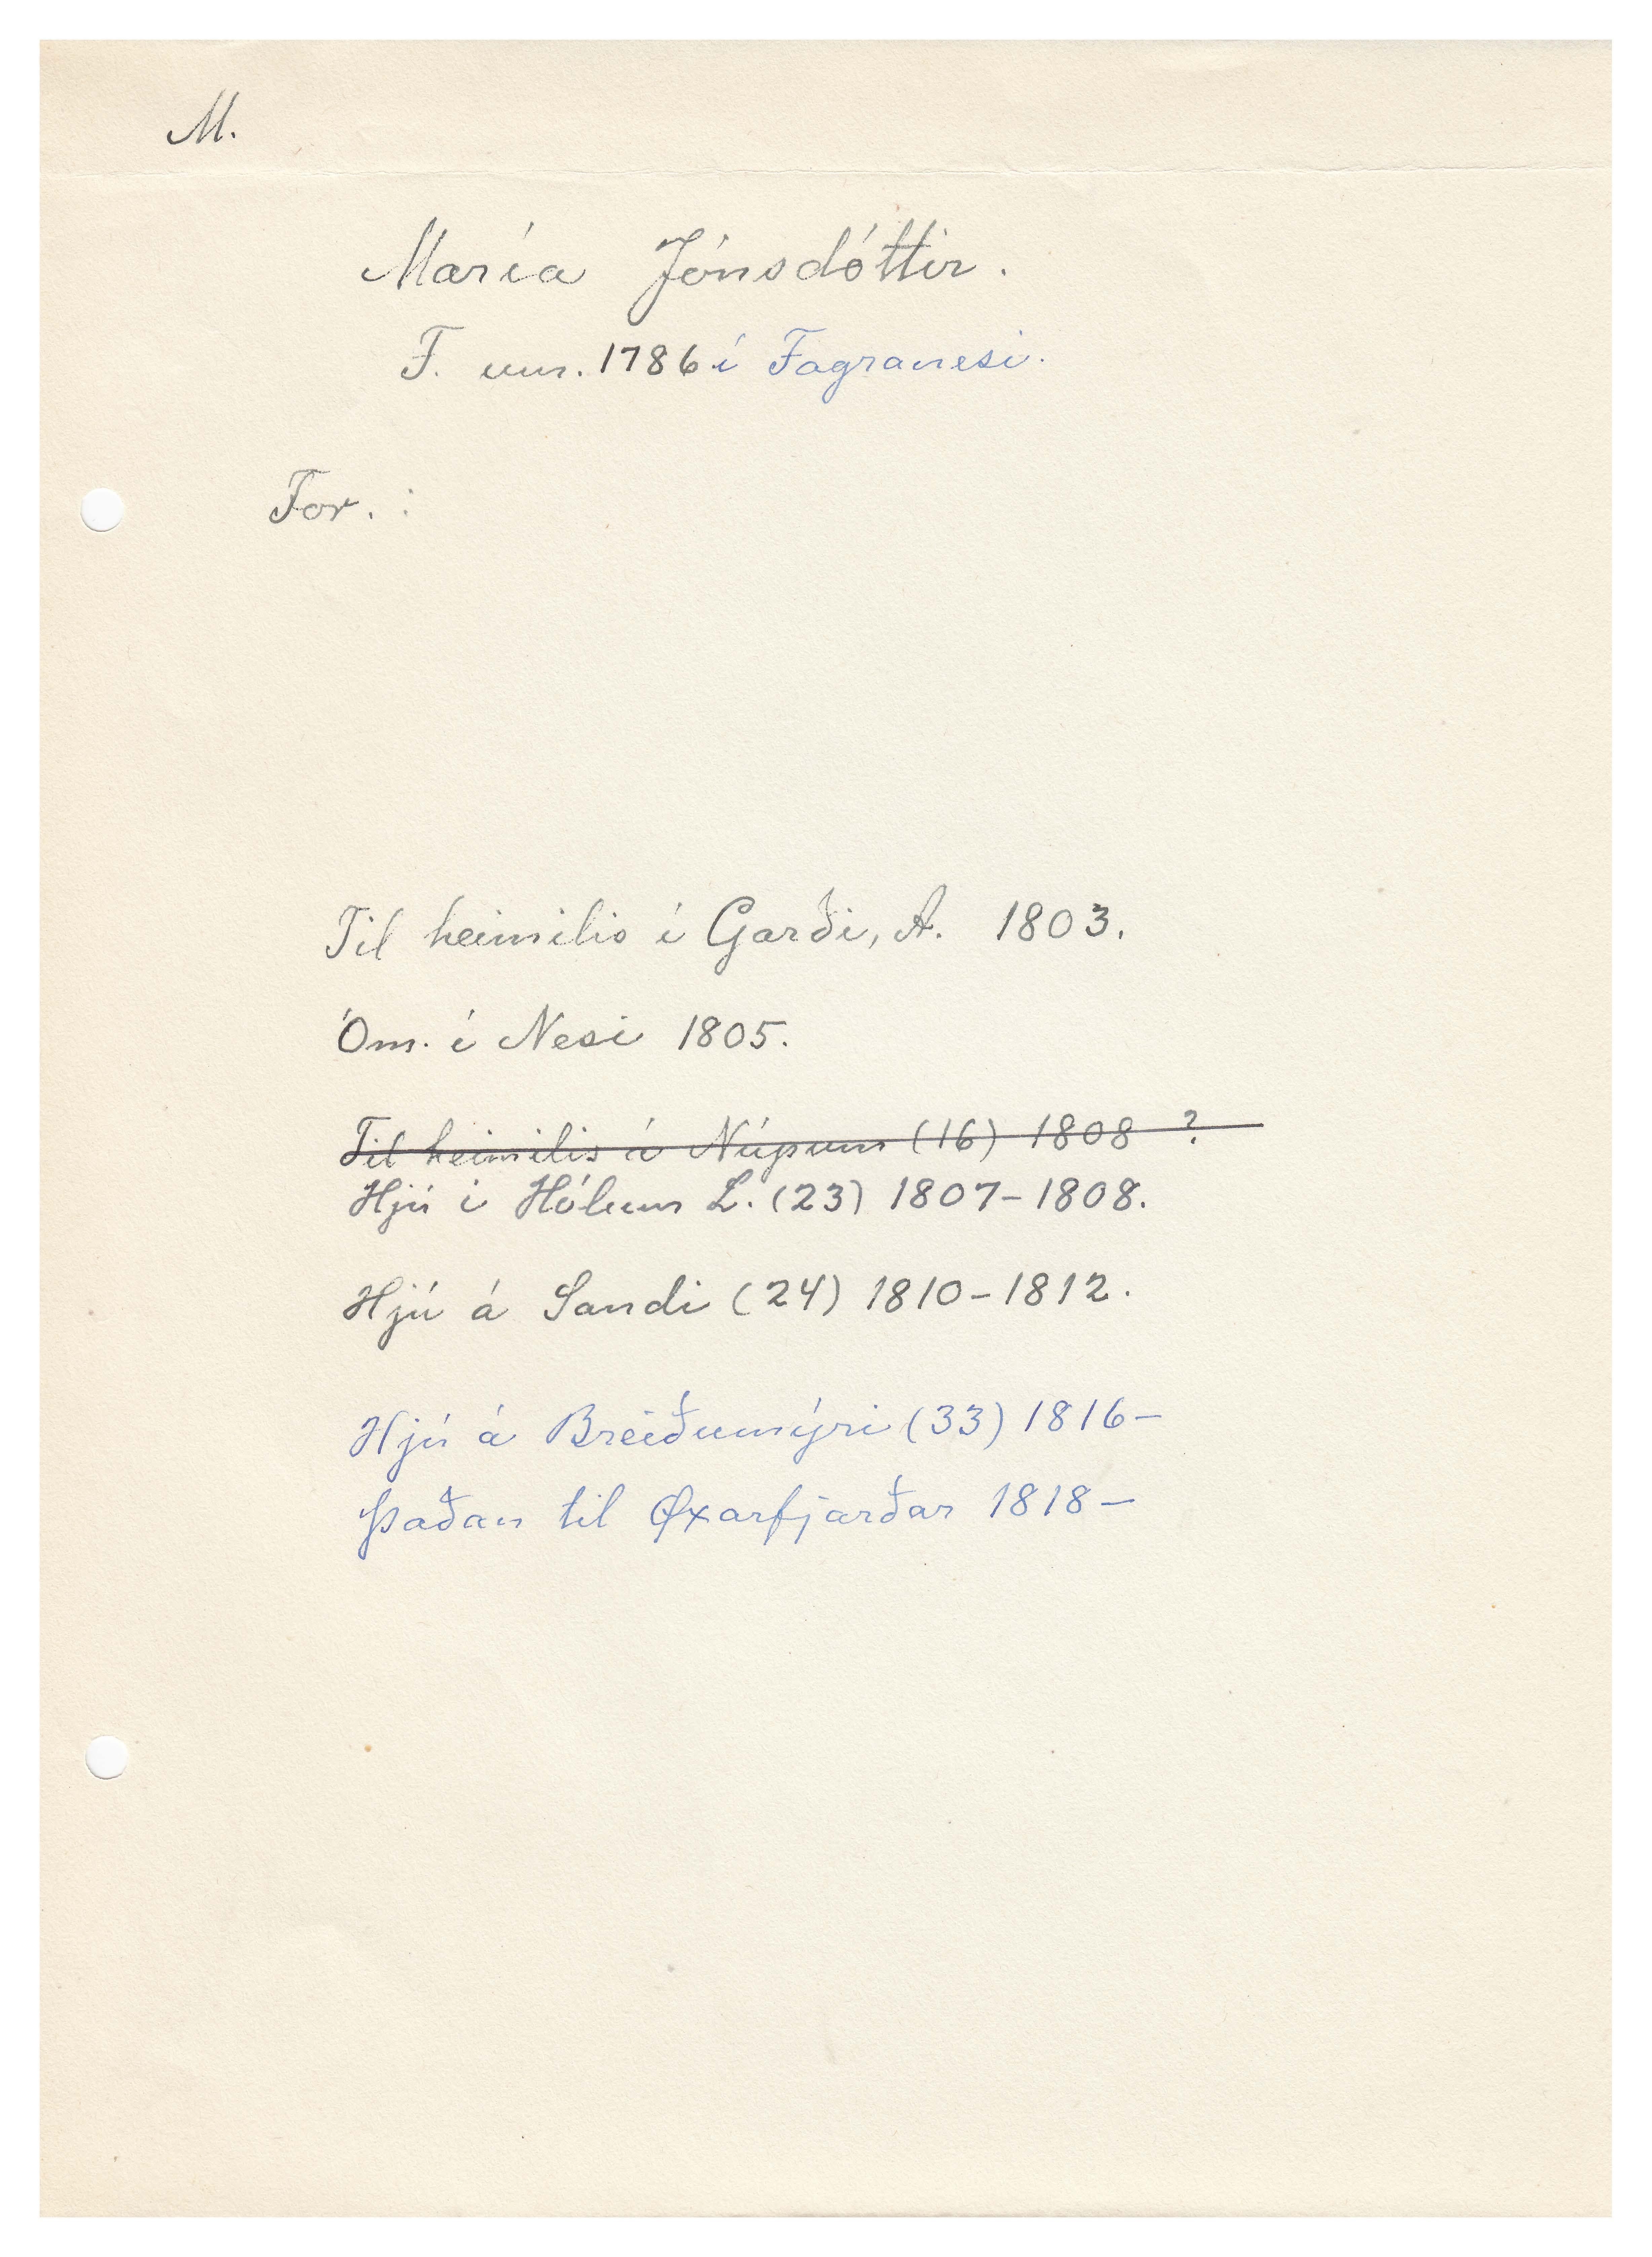 M.
María Jónsdóttir.
F. um. 1786 í Fagranesi.
For. :
Til heimilis í Garði, A. 1803.
Óm. í Nesi 1805.
Til heimilis á Núpum (16) 1808 ?
Hjú í Hólum L. (23) 1807-1808.
Hjú á Sandi (24) 1810-1812.
Hjú á Breiðumýri (33) 1816-
Þaðan til Øxarfjarðar 1818-